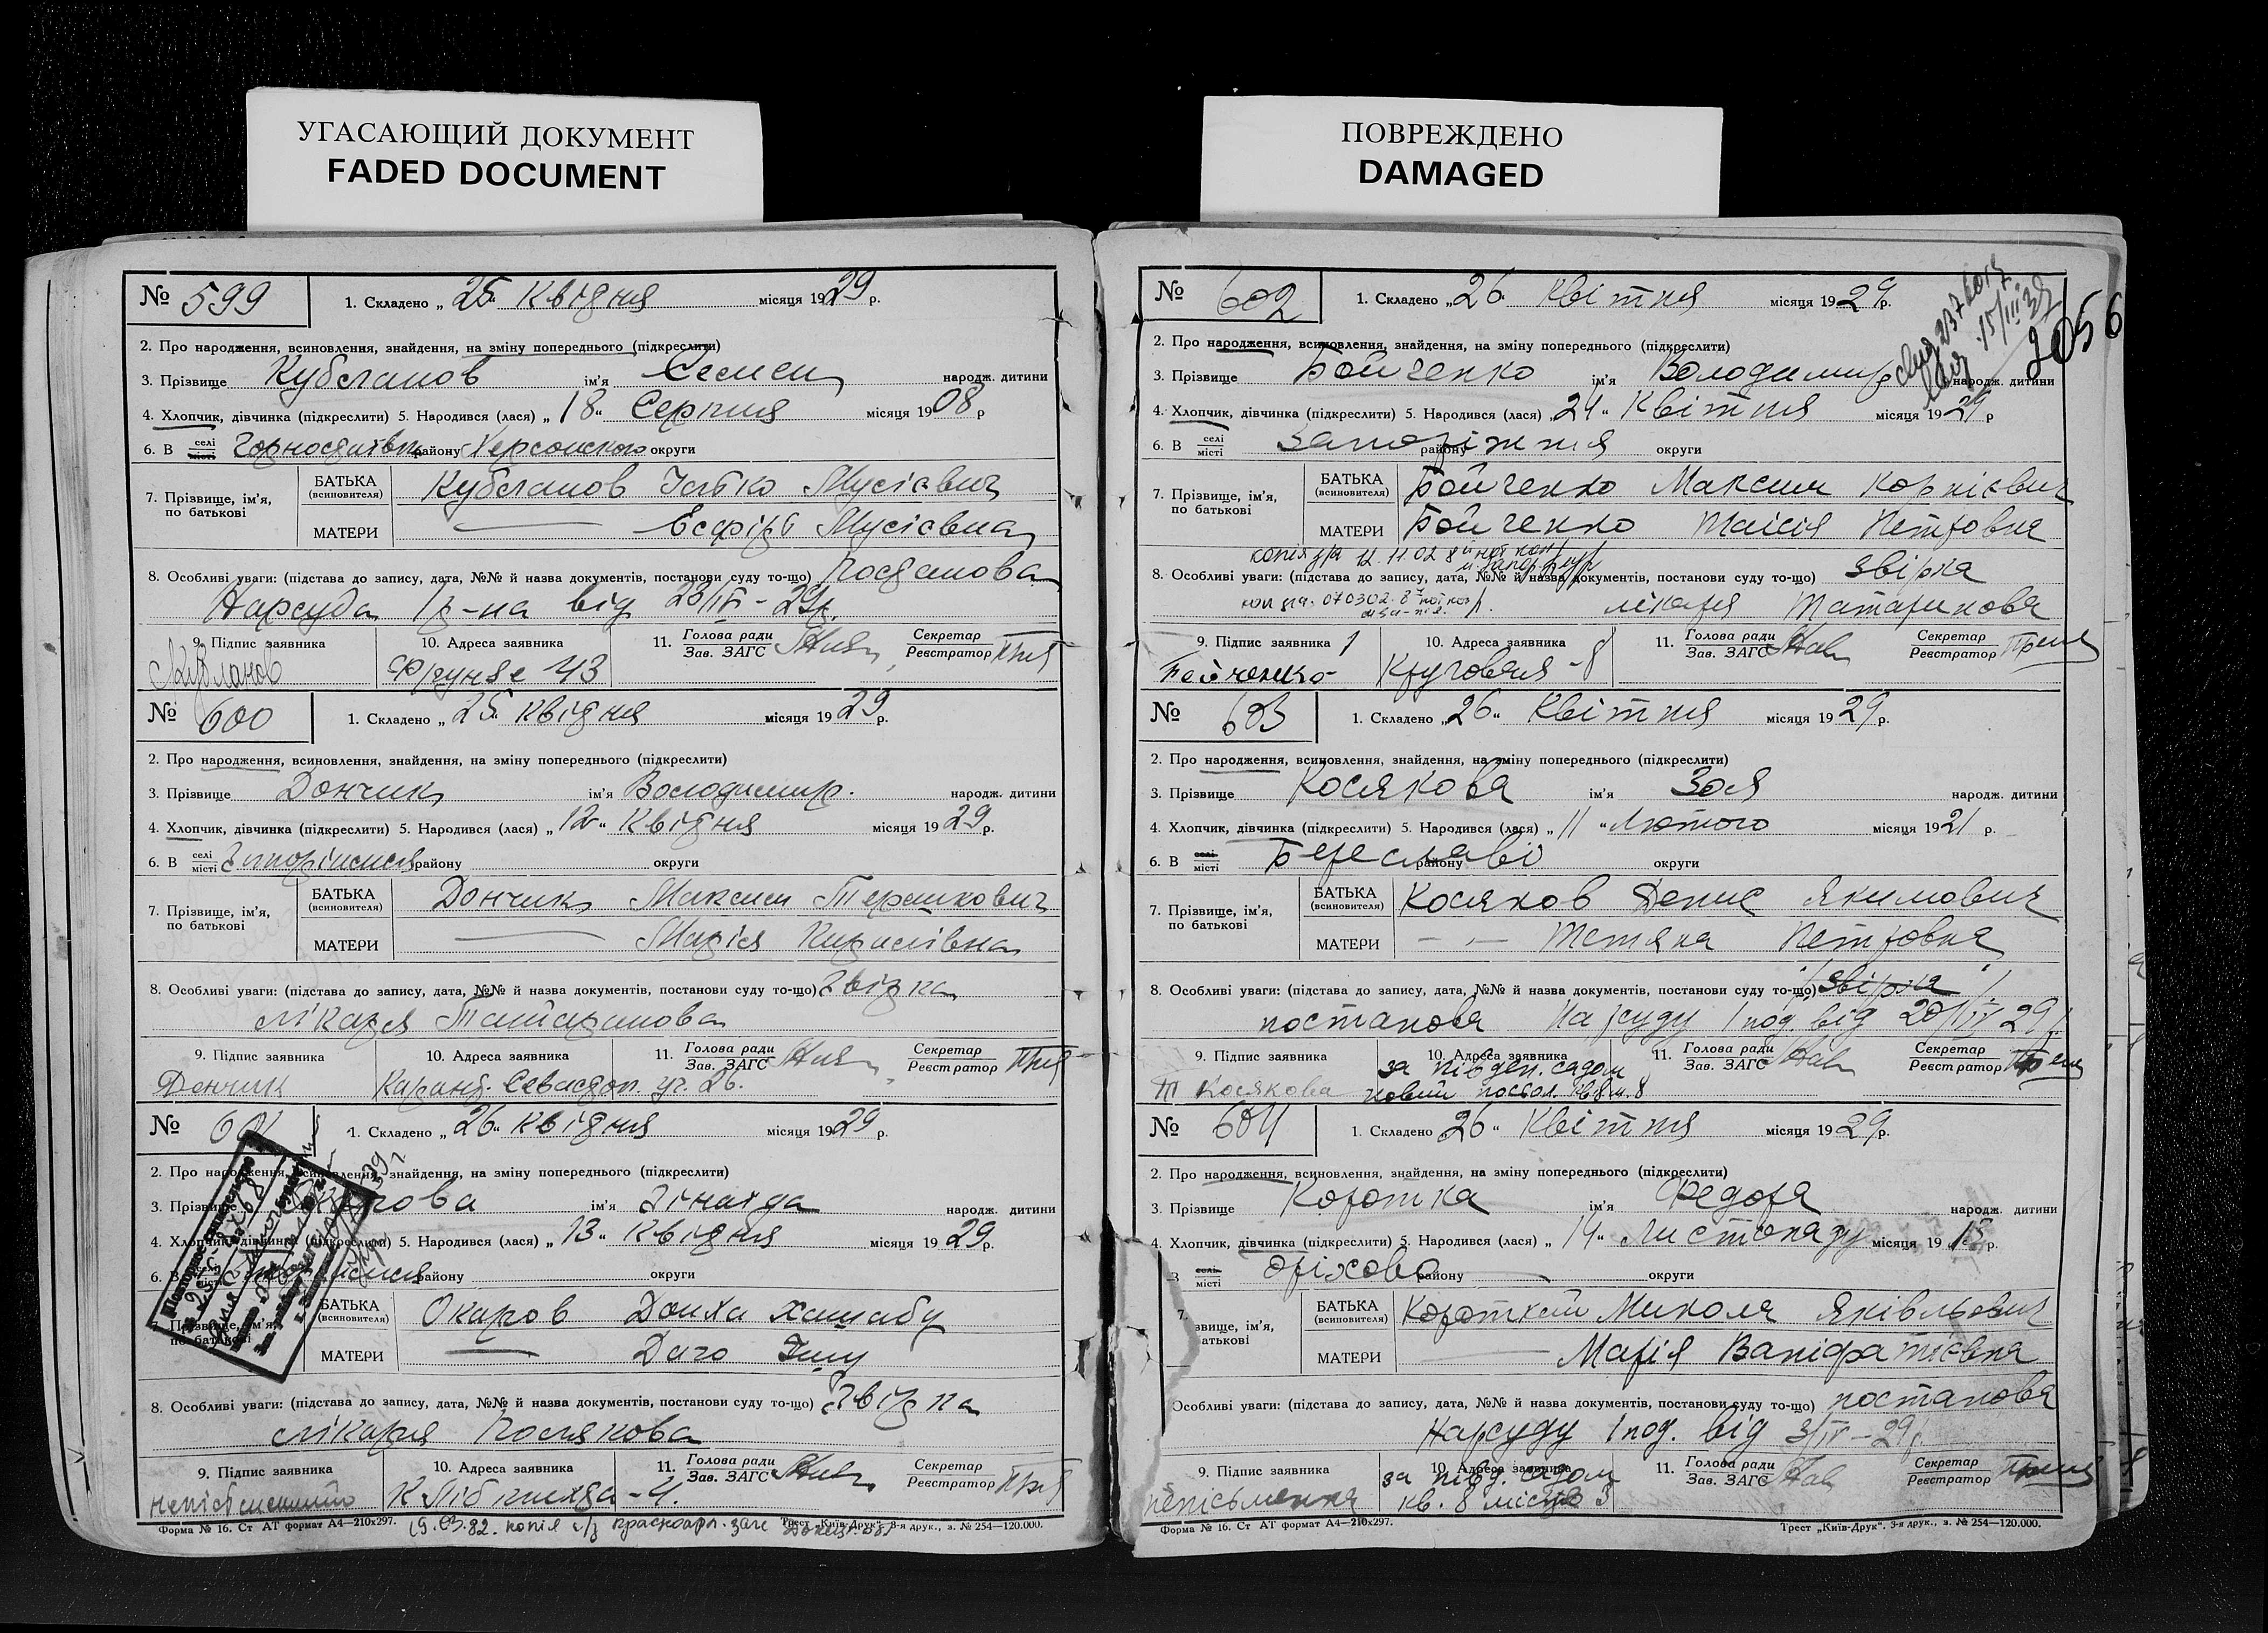 УГАСАЮЩИЙ ДОКУМЕНТ
FADED DOCUMENT
ПОВРЕЖДЕНО
DAMAGED
№ 599
1. Складено „ 25 “ Квітня місяця 1929 р.
2. Про народження, всиновлення, знайдення, на зміну попереднього (підкреслити)
3. Прізвище Кубланов ім'я Семен народж. дитини
4. Хлопчик, дівчинка (підкреслити) 5. Народився (лася) „ 18 “ Серпня місяця 1908 р
6. В селі місті району Херсонського округи
7. Прізвище, ім'я, по батькові
БАТЬКА (всиновителя) Кубланов Мусієвич
МАТЕРИ — Мусієвна
8. Особливі уваги: (підстава до запису, дата, №№ й назва документів, постанови суду то-що) Постанова
Нарсуда від 29р.
9. Підпис заявника 10. Адреса заявника 11. Голова ради Зав. ЗАГС Секретар Реєстратор
Кубланов Фрунзе 43
№ 600
1. Складено „ 25 “ Квітня місяця 1929 р.
2. Про народження, всиновлення, знайдення, на зміну попереднього (підкреслити)
3. Прізвище Дончик ім'я Володимир. народж. дитини
4. Хлопчик, дівчинка (підкреслити) 5. Народився (лася) „ 12 “ Квітня місяця 1929 р.
6. В селі місті Запоріжжя району округи
7. Прізвище, ім'я, по батькові
БАТЬКА (всиновителя) Дончик Максим
МАТЕРИ — Марія Кирилівна
8. Особливі уваги: (підстава до запису, дата, №№ й назва документів, постанови суду то-що) звірка
лікаря Татаринова
9. Підпис заявника 10. Адреса заявника 11. Голова ради Зав. ЗАГС Секретар Реєстратор
Дончик 26.
№ 601
1. Складено „ 26 “ Квітня місяця 1929 р.
2. Про народження, всиновлення, знайдення, на зміну попереднього (підкреслити)
3. Прізвище ім'я Зінаїда народж. дитини
4. Хлопчик, дівчинка (підкреслити) 5. Народився (лася) „ 13 “ Квітня місяця 1929 р.
6. В селі місті району округи
7. Прізвище, ім'я, по батькові
БАТЬКА (всиновителя) Окаров
МАТЕРИ —
8. Особливі уваги: (підстава до запису, дата, №№ й назва документів, постанови суду то-що) звірка
лікаря Послякова
9. Підпис заявника 10. Адреса заявника 11. Голова ради Зав. ЗАГС Секретар Реєстратор
К Лібкнехта - 4.
Форма № 16. Ст АТ формат А4—210х297. 19.03.82. копія Трест „Київ-Друк“. 3-я друк., з. № 254—120.000.
№ 602
1. Складено „ 26 “ Квітня місяця 1929 р.
2056
2. Про народження, всиновлення, знайдення, на зміну попереднього (підкреслити)
3. Прізвище Бойченко ім'я Володимир народж. дитини
4. Хлопчик, дівчинка (підкреслити) 5. Народився (лася) „ 24 “ Квітня місяця 1929 р
6. В селі місті Запоріжжя району округи
7. Прізвище, ім'я, по батькові
БАТЬКА (всиновителя) Бойченко Максим Корнієвич
МАТЕРИ Бойченко Таїсія Петровна
копія 12.11.02
8. Особливі уваги: (підстава до запису, дата, №№ й назва документів, постанови суду то-що) звірка
лікаря Татаринова
9. Підпис заявника 10. Адреса заявника 11. Голова ради Зав. ЗАГС Секретар Реєстратор
Бойченко Круговая - 8
№ 603
1. Складено „ 26 “ Квітня місяця 1929 р.
2. Про народження, всиновлення, знайдення, на зміну попереднього (підкреслити)
3. Прізвище Косякова ім'я Зоя народж. дитини
4. Хлопчик, дівчинка (підкреслити) 5. Народився (лася) „ 11 “ Лютого місяця 1921 р.
6. В селі місті Береславі району округи
7. Прізвище, ім'я, по батькові
БАТЬКА (всиновителя) Косяков Денис Якимович
МАТЕРИ — „ — Тетяна Петровна
8. Особливі уваги: (підстава до запису, дата, №№ й назва документів, постанови суду то-що) звірка
постанова Нарсуду 1 под. від 20/IV 29р.
9. Підпис заявника 10. Адреса заявника 11. Голова ради Зав. ЗАГС Секретар Реєстратор
Т Косякова за півден. садом
№ 604
1. Складено „ 26 “ Квітня місяця 1929 р.
2. Про народження, всиновлення, знайдення, на зміну попереднього (підкреслити)
3. Прізвище Коротка ім'я Федора народж. дитини
4. Хлопчик, дівчинка (підкреслити) 5. Народився (лася) „ 14 “ Листопаду місяця 1915 р.
селі місті Оріхово району — округи
7. звище, ім'я, атькові
БАТЬКА (всиновителя) Короткий Микола Яківльович
МАТЕРИ — Марія Ваніфатієвна
Особливі уваги: (підстава до запису, дата, №№ й назва документів, постанови суду то-що) постанова
Нарсуду 1 под. від 3/IV - 29р.
9. Підпис заявника 10. Адреса заявника 11. Голова ради Зав. ЗАГС Секретар Реєстратор
непісьменна за півд. садом
кв. 8 місце 3
Форма № 16. Ст АТ формат А4—210х297. Трест „Київ-Друк“. 3-я друк., з. № 254—120.000.